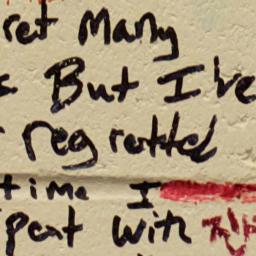 ret Many
But I've
regretted
time I
pent with